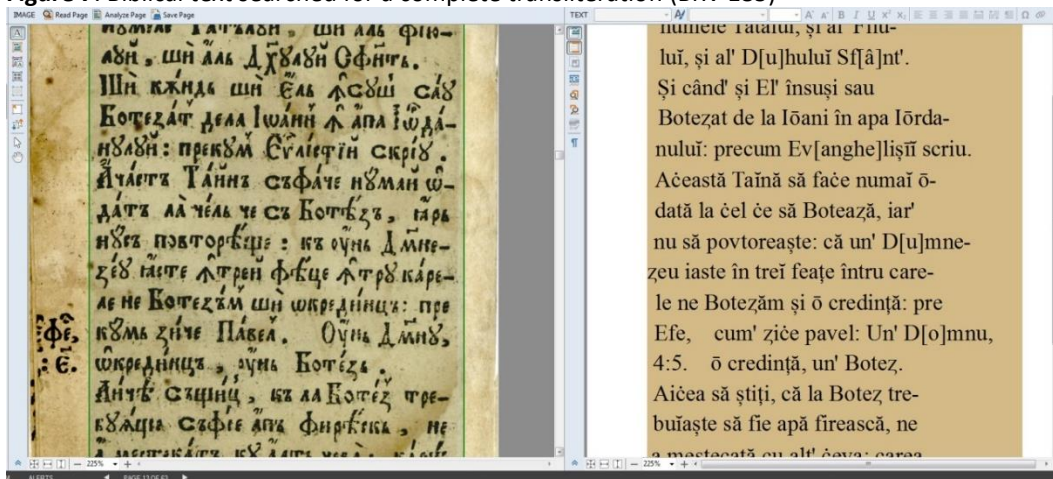 Biblical text searched for a complete transliteration
IMAGE Read Page Analyze Page Save Page
TEXT
лꙋй , шѝ а́ль Дх҃ꙋлꙋй Сфи́ть.
Шѝ кѫ́ндь шѝ Е́ль ꙟсꙋ́ш са́ꙋ
Ботеза́т дела Іѡа́нн ꙟ а́па Іѡ҆да́-
нꙋлꙋй : прекꙋ́м Еѵ҃лїстїй скрі́ꙋ .
Ача́стъ Та́йнъ съфа́че нꙋма́й ѡ-
да́тъ ла че́ль че съ Боте́зъ , ꙗ҆рь
нꙋсъ повторѣ́ще : къ ᲂу҆́нь Дм҃не-
зе́ꙋ ꙗ҆́сте ꙟтрей фѣ́це ꙟтрꙋ ка́ре-
ле не Ботезъ́м шѝ ѡкреди́нцъ : пре
кꙋ́мь зи́че Па́вел . Оу҆нь Дм҃нꙋ,
Ефе,
: Е.
ѡкреди́нцъ , ᲂу҆́нь Боте́зь .
Аи́чѣ същи́ц , къ ла Боте́з тре-
бꙋꙗ҆́ще съфі́е а́пъ фирѣ́скь , не
numele Tatăluĭ, și al' Fiiu-
luĭ, și al' D[u]huluĭ Sf[â]nt'.
Și când' și El' însuși sau
Botez̦at de la Iōani în apa Iōrda-
nuluĭ: precum Ev[anghe]lișiĭ scriu.
Aċeastă Taĭnă să faċe numaĭ ō-
dată la ċel ċe să Botează, iar'
nu să povtoreaște: că un' D[u]mne-
z̦eu iaste în treĭ feațe întru care-
le ne Botez̦ăm și ō credință: pre
Efe, cum' z̦iċe pavel: Un' D[o]mnu,
4:5. ō credință, un' Botez̦.
Aiċea să știți, că la Botez̦ tre-
buĭaște să fie apă firească, ne
a mestecată cu alt' ċeva: carea
225%
225%
ALERTS PAGE 12 OF 63